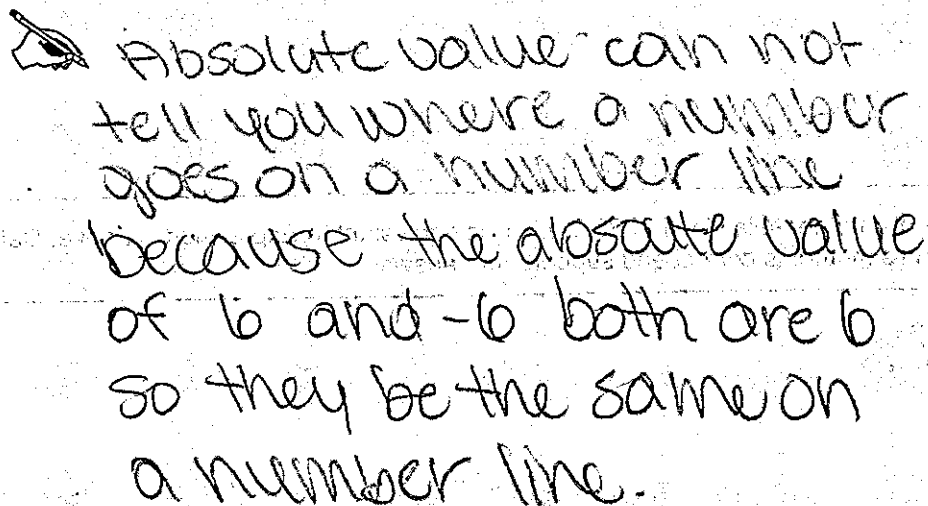 Absolute value can not
tell you where a number
goes on a number line
because the absoulte value
of 6 and -6 both are 6
so they be the same on
a number line.